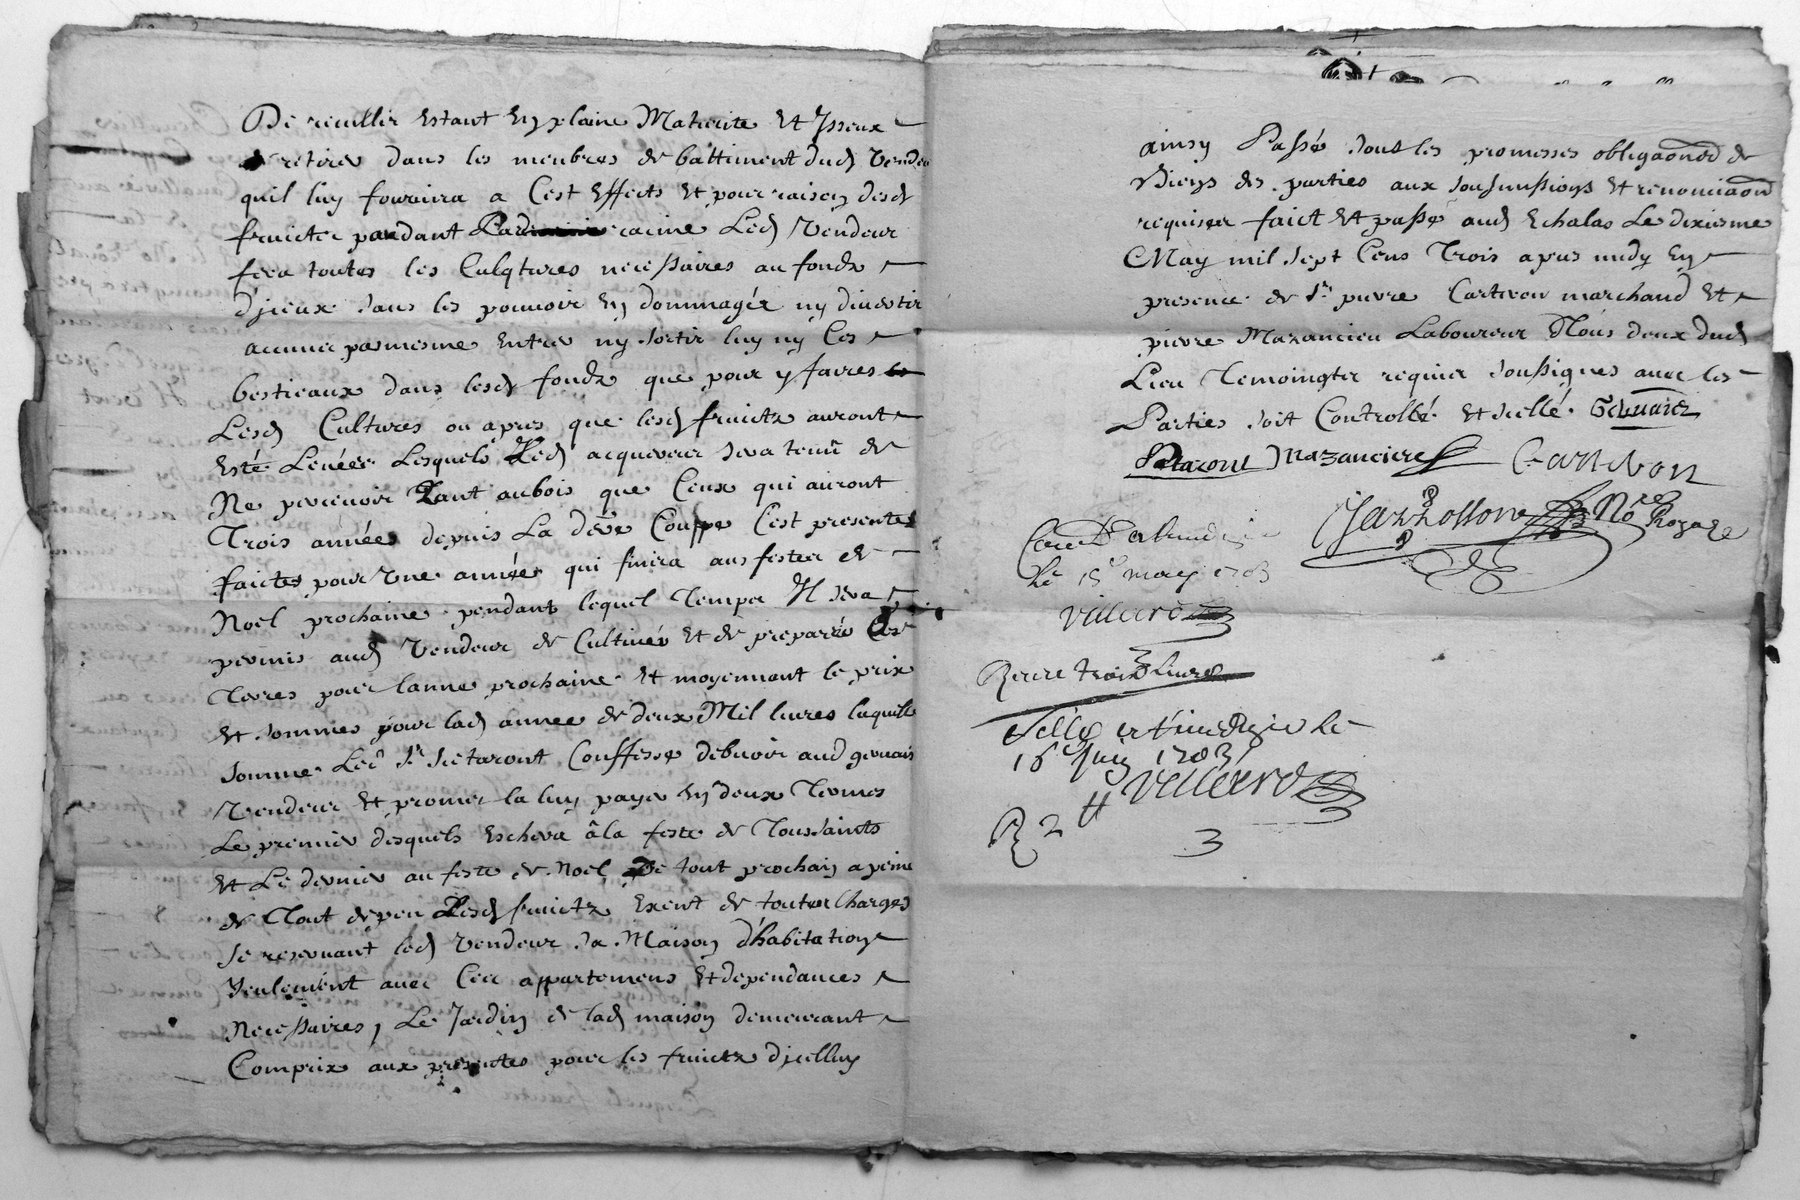 De reculir estant en plaine Maturite et Iceux
retirer dans les menbres de battiment dud vendeur
quil luy fournira a Cest Effects et pour raison desd
fruictz pandant racine Led Vendeur
fera toutes les Culqtures necessaires au fondz
djceux sans les pouvoir en dommagér ny divertir
aucuns pas mesme Entrer ny sortir luy ny Ces
bestieaux dans lesd fondz que pour y faires
Lesd Cultures ou apres que lesd fruictz auront
Esté Levées Lesquels Led acquereur sera tenu de
Ne percevoir Tant aubois que Ceux qui auront
Trois années depuis La dere Couppe C'est presentes
faictes pour Une année qui finira aus festes de
Noel prochaine pendant lequel Temps Il sera
permis aud Vendeur de Cultiver et de preparer Ces
Terres pour lanne prochaine Et moyennant le prix
et sommes pour lad année de deux Mil livres laquille
somme Led Sr Confesse debvoir aud gervais
Vendeur Et promet la luy payer En deux Termes
Le premier desquels Eschera â la feste de Toussaints
et Le dernier au feste de Noel Le tout prochain a peine
de Tout depen Lesd fruictz Exent de toutes Charges
se reservant led Vendeur sa Maison d'habitation
seulement avec Ces appartemens Et dependances
Necessaires, Le Jardin de lad maison demeurant
Comprix aux presentes pour les fruictz djcelluy
ainsy Passé soubs les promesses obligaons de
Biens des parties aux soubmissions Et renonciaons
requises faict Et passé aud Echalas Le dixiesme
May mil sept Cens Trois apres midy En
presence de Sr pierre Carteron marchand Et
pierre Mazancieu Laboureur Nous deux dud
Lieu Temoingtz requis soussignes avec les
Parties soit Controllé et scellé Gervaiez
Mazancieu Carteron
No Royale
Le 15 may 1703
Villard
Receu trois livres
Sellé
16 Juin 1703
Villard
R 2 tt
3